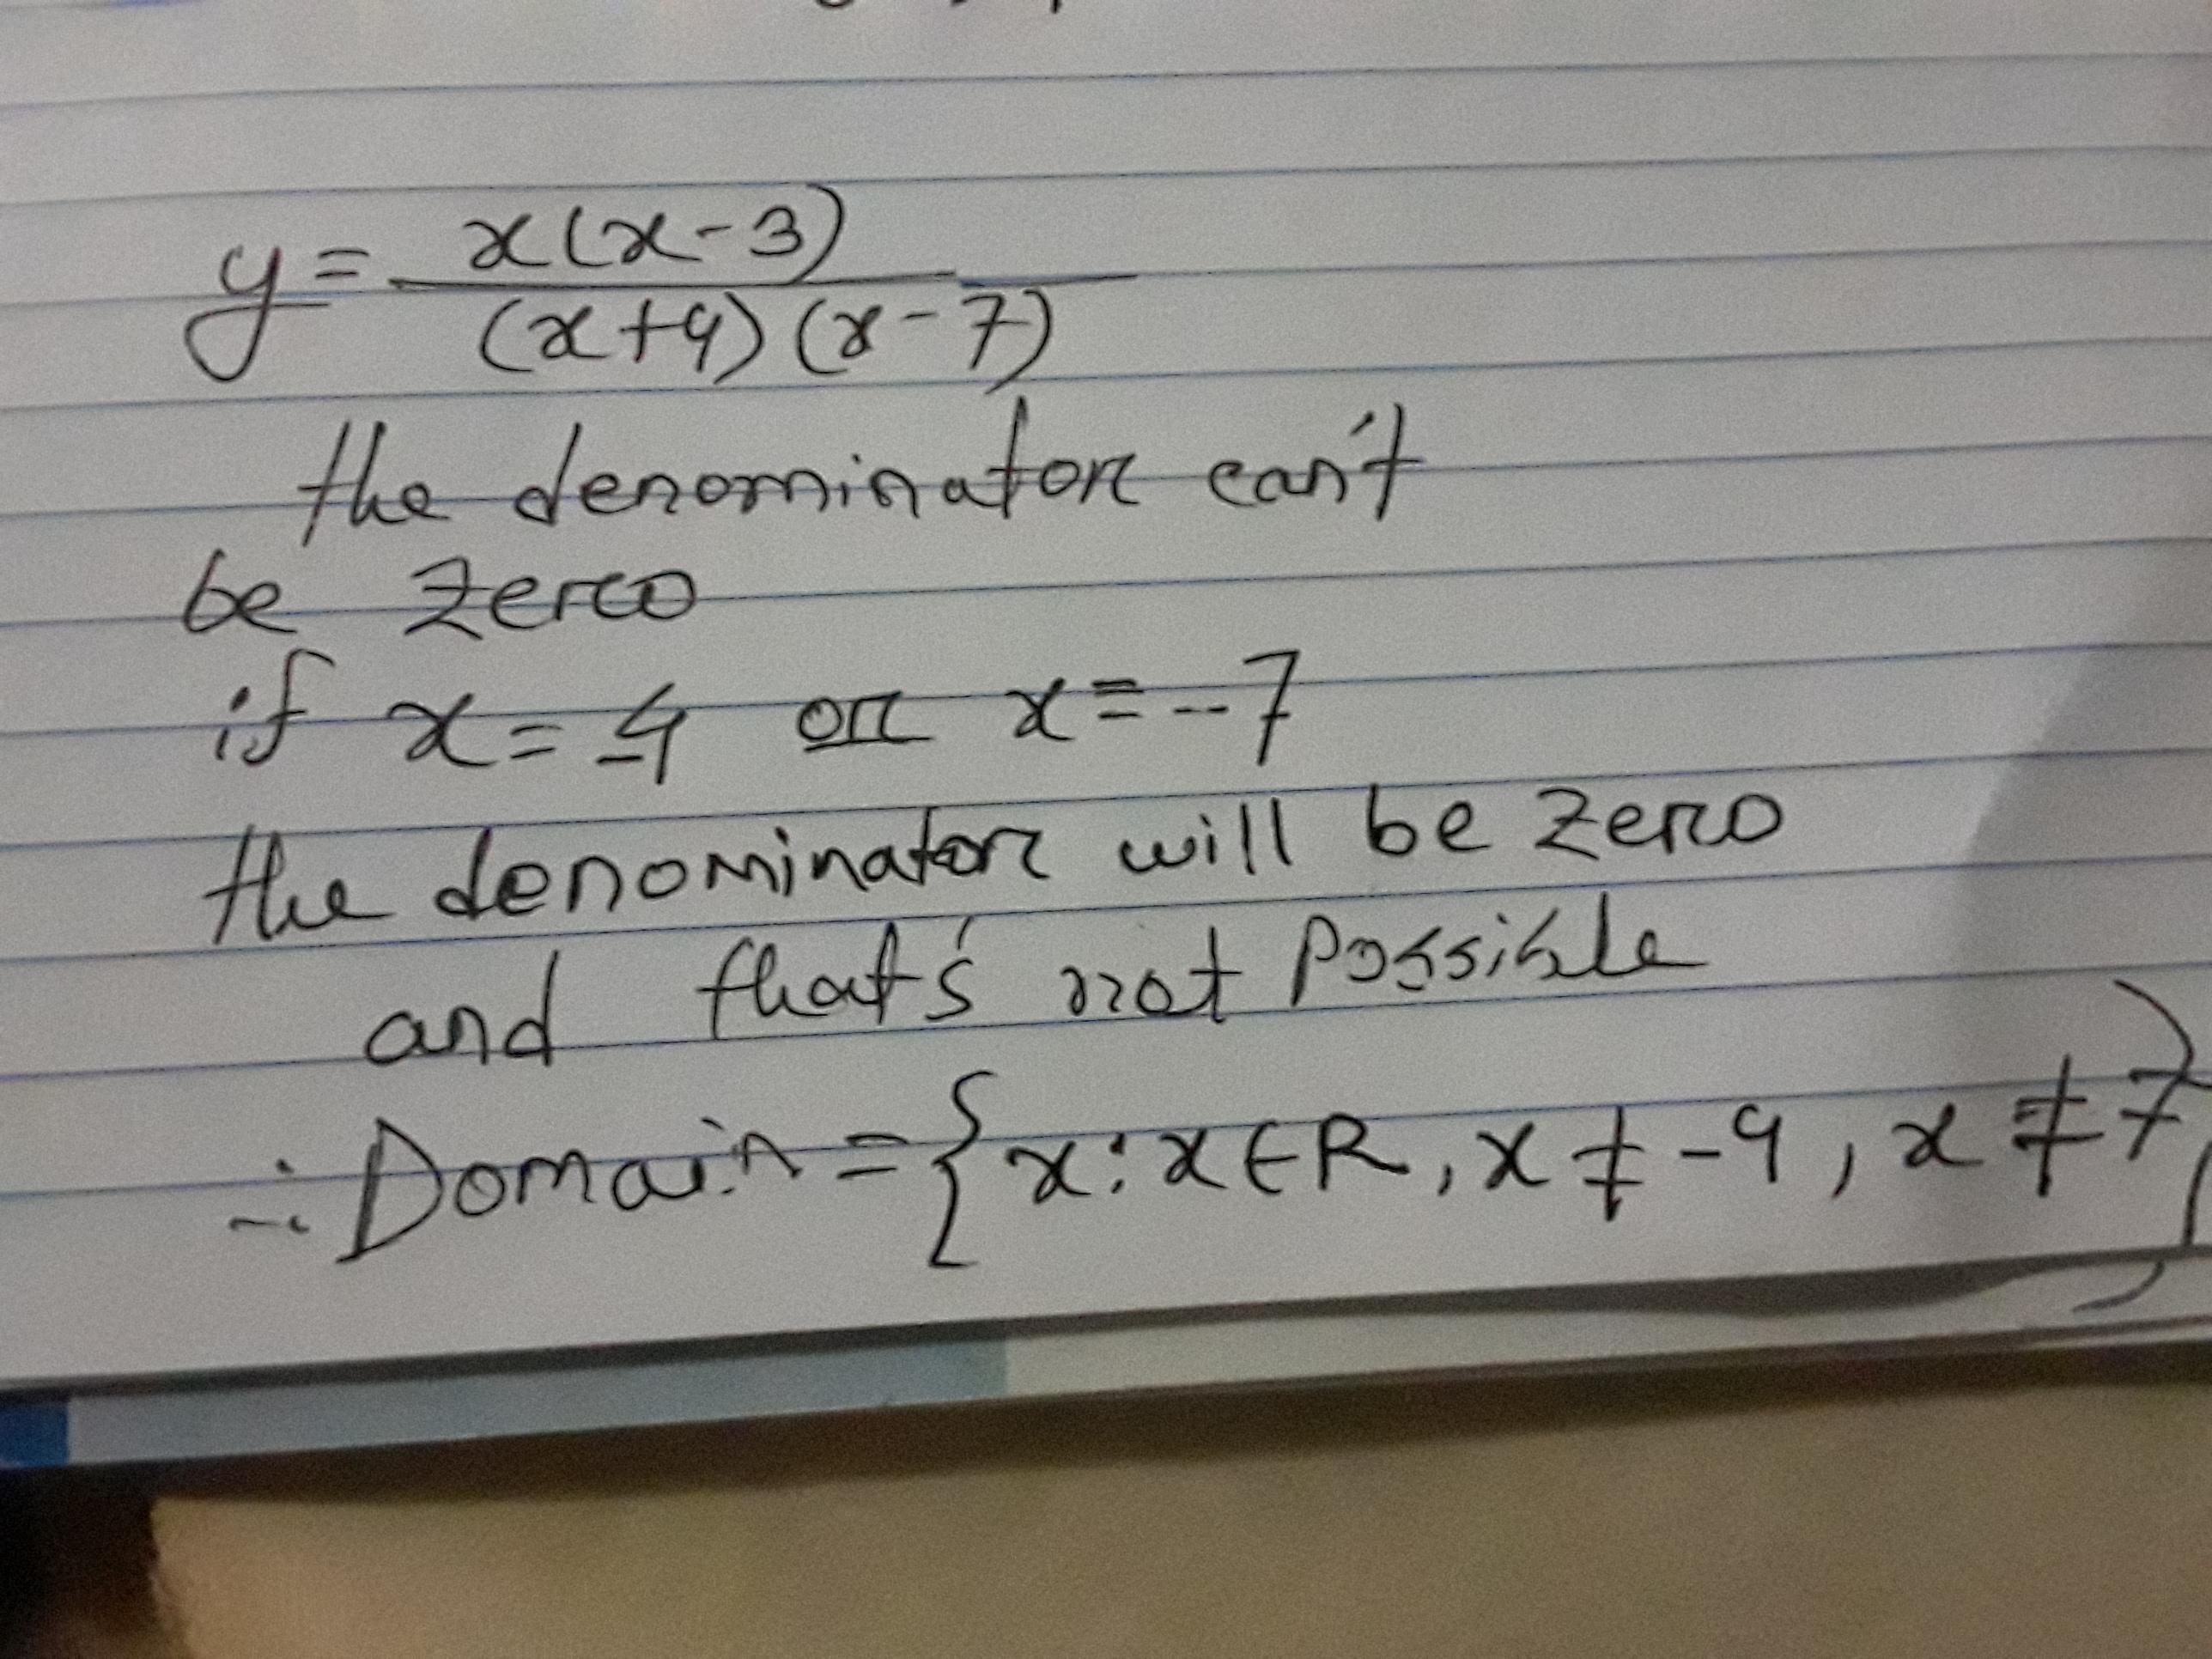 y = x(x-3) / (x+4)(x-7)
the denominator can't
be zero
if x = -4 or x = -7
the denominator will be zero
and that's not possible
∴ Domain = {x : x ∈ R, x ≠ -4, x ≠ 7}